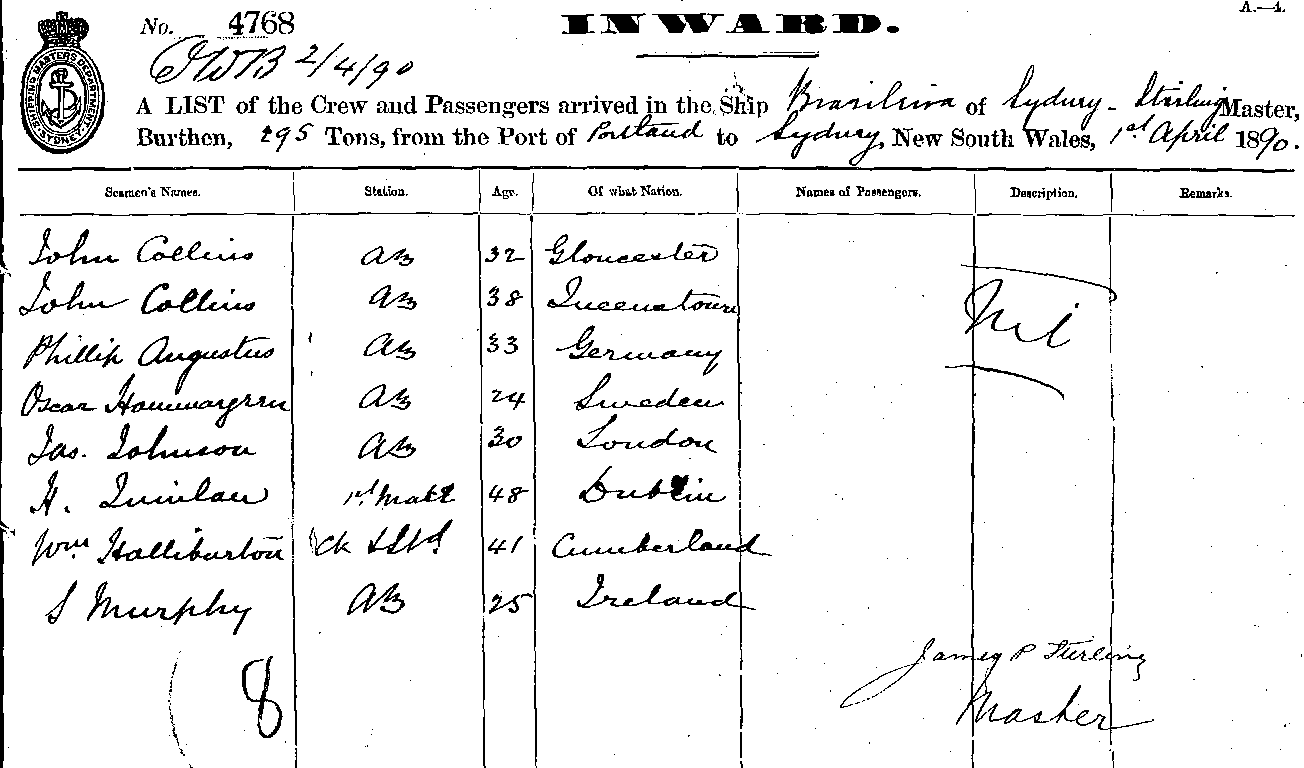 No. 4768 INWARD. A.—4.
SHIPPING MASTER'S DEPARTMENT SYDNEY
2/4/90
A LIST of the Crew and Passengers arrived in the Ship Brasileira of Sydney - Stirling Master,
Burthen, 295 Tons, from the Port of Portland to Sydney, New South Wales, 1st April 1890.
Seamen's Names. Station. Age. Of what Nation. Names of Passengers. Description. Remarks.
John Collins AB 32 Gloucester
John Collins AB 38 Queenstown
Nil
Phillip Augustus AB 33 Germany
Oscar Hammargren AB 24 Sweden
Jas. Johnson AB 30 London
H. Quinlan 1st Mate 48 Dublin
Wm Halliburton Ck & Std 41 Cumberland
S Murphy AB 25 Ireland
James P Stirling
8 Master